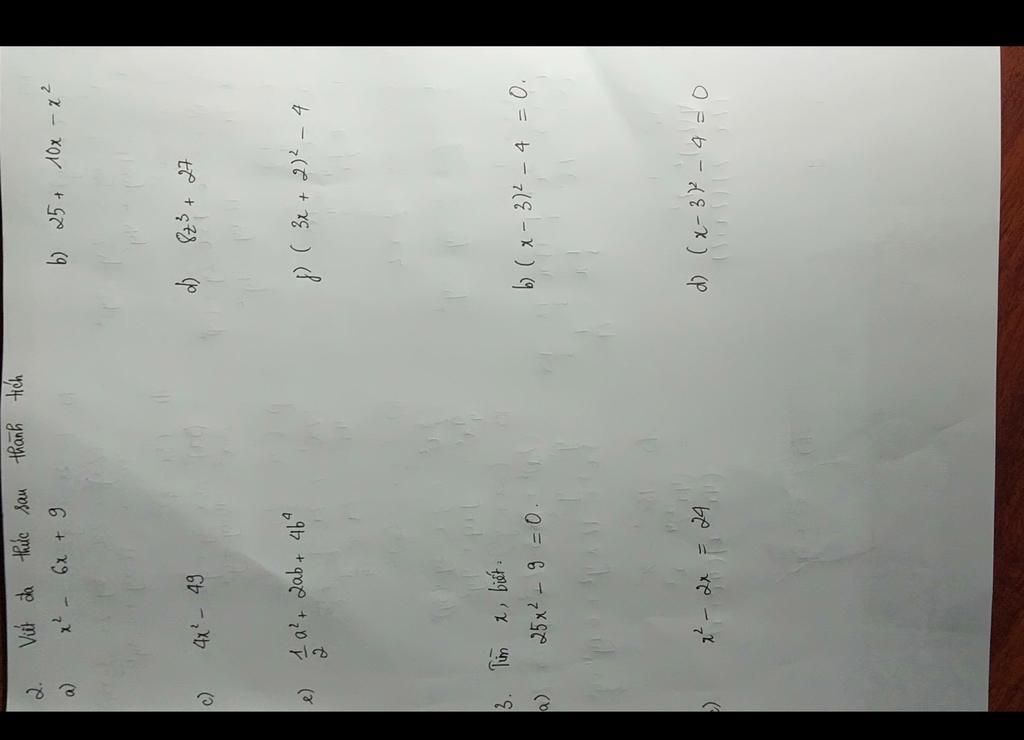 2. Viết đa thức sau thành tích
a) x² - 6x + 9 b) 25 + 10x - x²
c) 4x² - 49 d) 8z³ + 27
e) 1/2 a² + 2ab + 4b⁴ f) (3x + 2)² - 4
3. Tìm x, biết:
a) 25x² - 9 = 0. b) (x - 3)² - 4 = 0.
c) x² - 2x = 24 d) (x - 3)² - 4 = 0